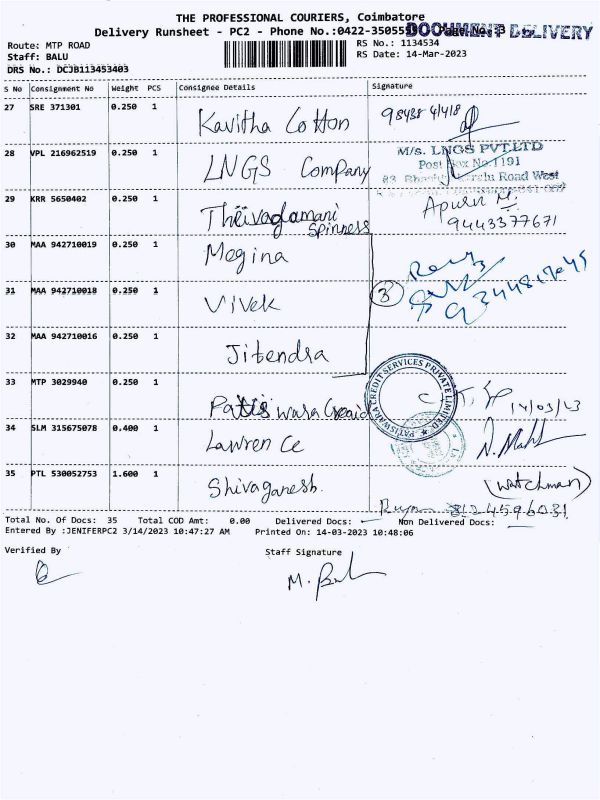 THE PROFESSIONAL COURIERS, Coimbatore
Delivery Runsheet - PC2 - Phone No.:0422-350555 Page No.:3
DOCUMENT DELIVERY
Route: MTP ROAD RS No.: 1134534
Staff: BALU RS Date: 14-Mar-2023
DRS No.: DCJB113453403
S No Consignment No Weight PCS Consignee Details Signature
27 SRE 371301 0.250 1 Kavitha Cotton
28 VPL 216962519 0.250 1 LNGS Company
M/s. LNGS PVT.LTD
Post Box No.1191
Road West
29 KRR 5650402 0.250 1 Spinness
9443377671
30 MAA 942710019 0.250 1 Megina
31 MAA 942710018 0.250 1 Vivek 3
32 MAA 942710016 0.250 1 Jitendra
33 MTP 3029940 0.250 1
PATISWARA CREDIT SERVICES PRIVATE LIMITED
14/03/23
34 SLM 315675078 0.400 1 Lawrence
35 PTL 530052753 1.600 1 Shivaganesh. (Watchman)
8124596031
Total No. Of Docs: 35 Total COD Amt: 0.00 Delivered Docs: Non Delivered Docs:
Entered By :JENIFERPC2 3/14/2023 10:47:27 AM Printed On: 14-03-2023 10:48:06
Verified By Staff Signature